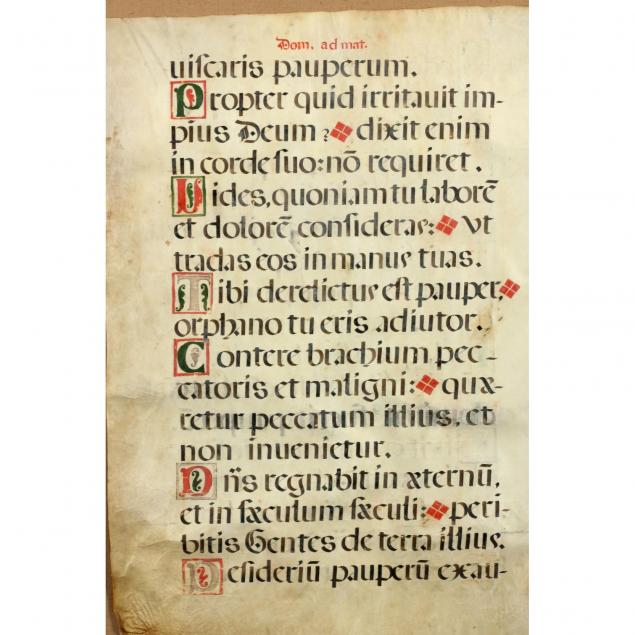 Dom. ad mat.
uiſcaris pauperum.
Propter quid irritauit im-
pius Deum? dixit enim
in corde ſuo: nō requiret.
Vides, quoniam tu laborē
et dolorē, conſideras: Vt
tradas eos in manus tuas.
Tibi derelictus eſt pauper,
orphano tu eris adiutor.
Contere brachium pec-
catoris et maligni: quæ-
retur peccatum illius, et
non inuenietur.
Dn̄s regnabit in æternū,
et in ſæculum ſæculi: peri-
bitis Gentes de terra illius.
Deſideriū pauperū exau-